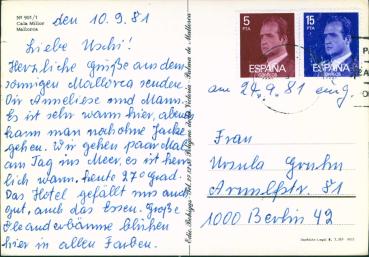 Nº 901/1
Cala Millor
Mallorca
den 10.9.81
Liebe Uschi!
Herzliche Grüße aus dem
sonnigen Mallorca senden
Dir Anneliese und Mann.
Es ist sehr warm hier, abends
kann man noch ohne Jacke
gehen. Wir gehen paar Mal
am Tag ins Meer, es ist herr
lich warm, heute 27 Grad.
Das Hotel gefällt uns auch
gut, auch das Essen. Große
Oleanderbäume blühen
hier in allen Farben.
5
PTA
ESPAÑA
CORREOS
15
PTA
ESPAÑA
CORREOS
am 24.9.81 eing.
Frau
Ursula
81
1000 Berlin 42